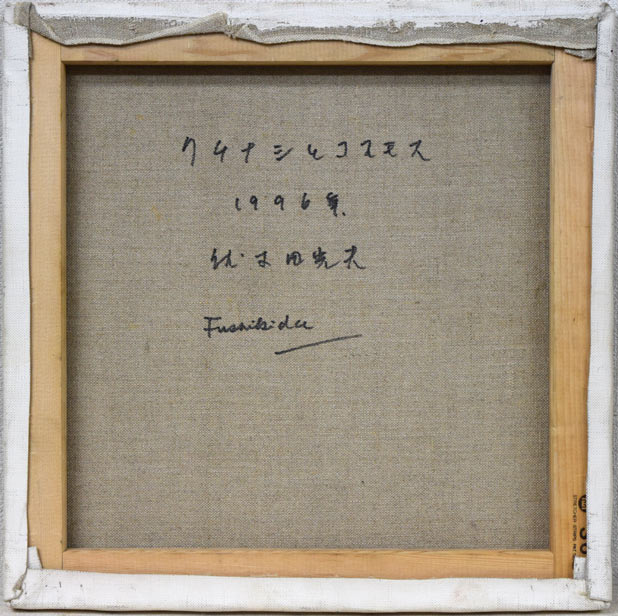 クチナシとコスモス
1996年.
伏木田光夫
Fushikida